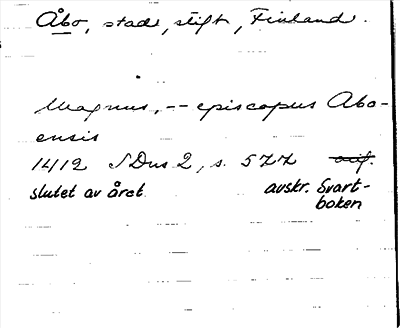 Åbo, stad, stift, Finland.
Magnus, -- episcopus Abo-
ensis
1412 SDns 2, s. 577 orig.
slutet av året. avskr. Svart-
boken